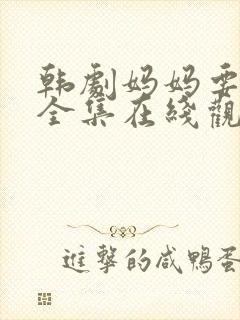 韩劇妈妈要
全集在綫觀
進擊的咸鴨蛋